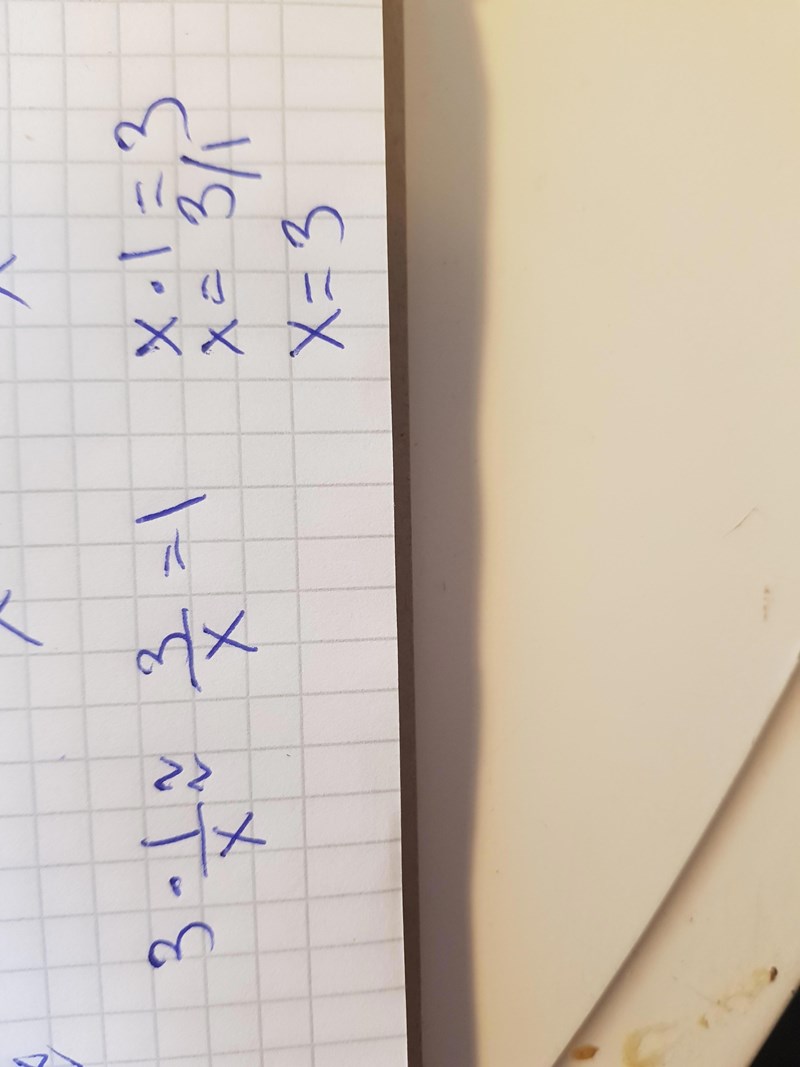 3 · 1/x ≈ 3/x = 1 x · 1 = 3
x = 3/1
x = 3